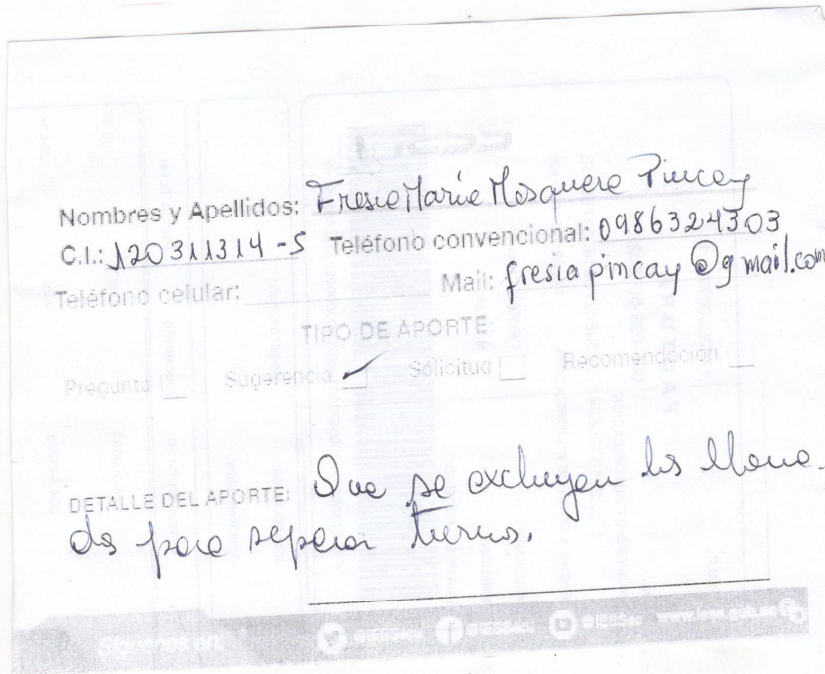 Nombres y Apellidos: Fresia María Mosquera Pincay
C.I.: 120311314-5 Teléfono convencional: 0986324303
Teléfono celular: Mail: fresiapincay@gmail.com
TIPO DE APORTE:
Pregunta Sugerencia ✓ Solicitud Recomendación
DETALLE DEL APORTE: Que se excluyen las llama-
das para separar turnos.
Síguenos en: @IESSec @IESSecu @IESSec www.iess.gob.ec